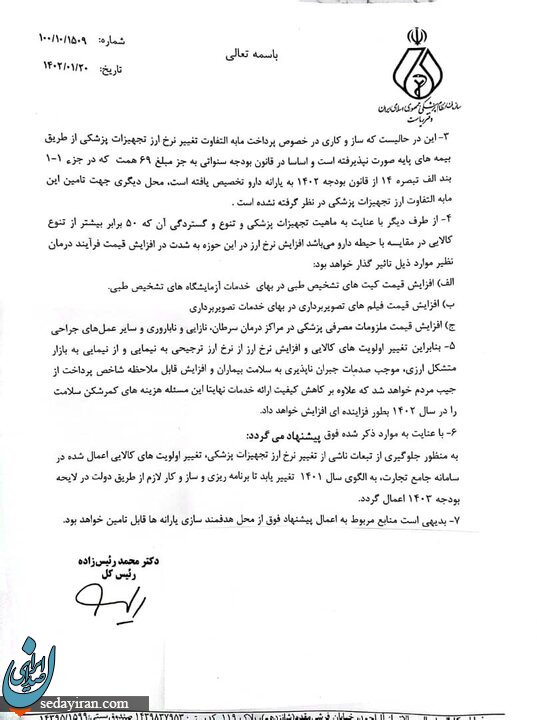 باسمه تعالی
شماره: ۱۰۰/۱۰/۱۵۰۹
تاریخ: ۱۴۰۲/۰۱/۲۰
سازمان نظام پزشکی جمهوری اسلامی ایران
دفتر ریاست
۳- این در حالیست که ساز و کاری در خصوص پرداخت مابه التفاوت تغییر نرخ ارز تجهیزات پزشکی از طریق
بیمه های پایه صورت نپذیرفته است و اساسا در قانون بودجه سنواتی به جز مبلغ ۶۹ همت که در جزء ۱-۱
بند الف تبصره ۱۴ از قانون بودجه ۱۴۰۲ به یارانه دارو تخصیص یافته است، محل دیگری جهت تامین این
مابه التفاوت ارز تجهیزات پزشکی در نظر گرفته نشده است .
۴- از طرف دیگر با عنایت به ماهیت تجهیزات پزشکی و تنوع و گستردگی آن که ۵۰ برابر بیشتر از تنوع
کالایی در مقایسه با حیطه دارو می‌باشد افزایش نرخ ارز در این حوزه به شدت در افزایش قیمت فرآیند درمان
نظیر موارد ذیل تاثیر گذار خواهد بود:
الف) افزایش قیمت کیت های تشخیص طبی در بهای خدمات آزمایشگاه های تشخیص طبی.
ب) افزایش قیمت فیلم های تصویربرداری در بهای خدمات تصویربرداری
ج) افزایش قیمت ملزومات مصرفی پزشکی در مراکز درمان سرطان، نازایی و ناباروری و سایر عمل‌های جراحی
۵- بنابراین تغییر اولویت های کالایی و افزایش نرخ ارز از نرخ ارز ترجیحی به نیمایی و از نیمایی به بازار
متشکل ارزی، موجب صدمات جبران ناپذیری به سلامت بیماران و افزایش قابل ملاحظه شاخص پرداخت از
جیب مردم خواهد شد که علاوه بر کاهش کیفیت ارائه خدمات نهایتا این مسئله هزینه های کمرشکن سلامت
را در سال ۱۴۰۲ بطور فزاینده ای افزایش خواهد داد.
۶- با عنایت به موارد ذکر شده فوق پیشنهاد می گردد:
به منظور جلوگیری از تبعات ناشی از تغییر نرخ ارز تجهیزات پزشکی، تغییر اولویت های کالایی اعمال شده در
سامانه جامع تجارت، به الگوی سال ۱۴۰۱ تغییر یابد تا برنامه ریزی و ساز و کار لازم از طریق دولت در لایحه
بودجه ۱۴۰۳ اعمال گردد.
۷- بدیهی است منابع مربوط به اعمال پیشنهاد فوق از محل هدفمند سازی یارانه ها قابل تامین خواهد بود.
دکتر محمد رئیس‌زاده
رئیس کل
صدای ایران
sedayiran.com